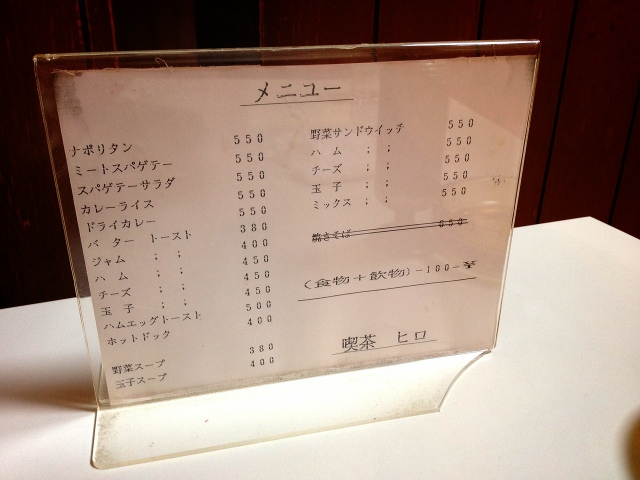 メニュー
ナポリタン 550
ミートスパゲテー 550
スパゲテーサラダ 550
カレーライス 550
ドライカレー 550
バター トースト 380
ジャム ; ; 400
ハム ; ; 450
チーズ ; ; 450
玉子 ; ; 450
ハムエッグトースト 500
ホットドック 400
野菜スープ 380
玉子スープ 400
野菜サンドウイッチ 550
ハム ; ; 550
チーズ ; ; 550
玉子 ; ; 550
ミックス ; ; 550
焼きそば 650
(食物+飲物)-100-
喫茶 ヒロ